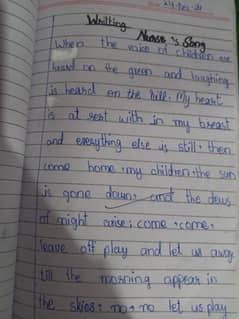 Writting
Nurse's Song
When the voice of children are
heard on the green and laughing
is heard on the hill, My heart
is at rest with in my breast
and everything else is still. then
come home, my children, the sun
is gone down, and the dews
of night arise; come, come,
leave off play and let us away
till the morning appear in
the skies: no, no let us play